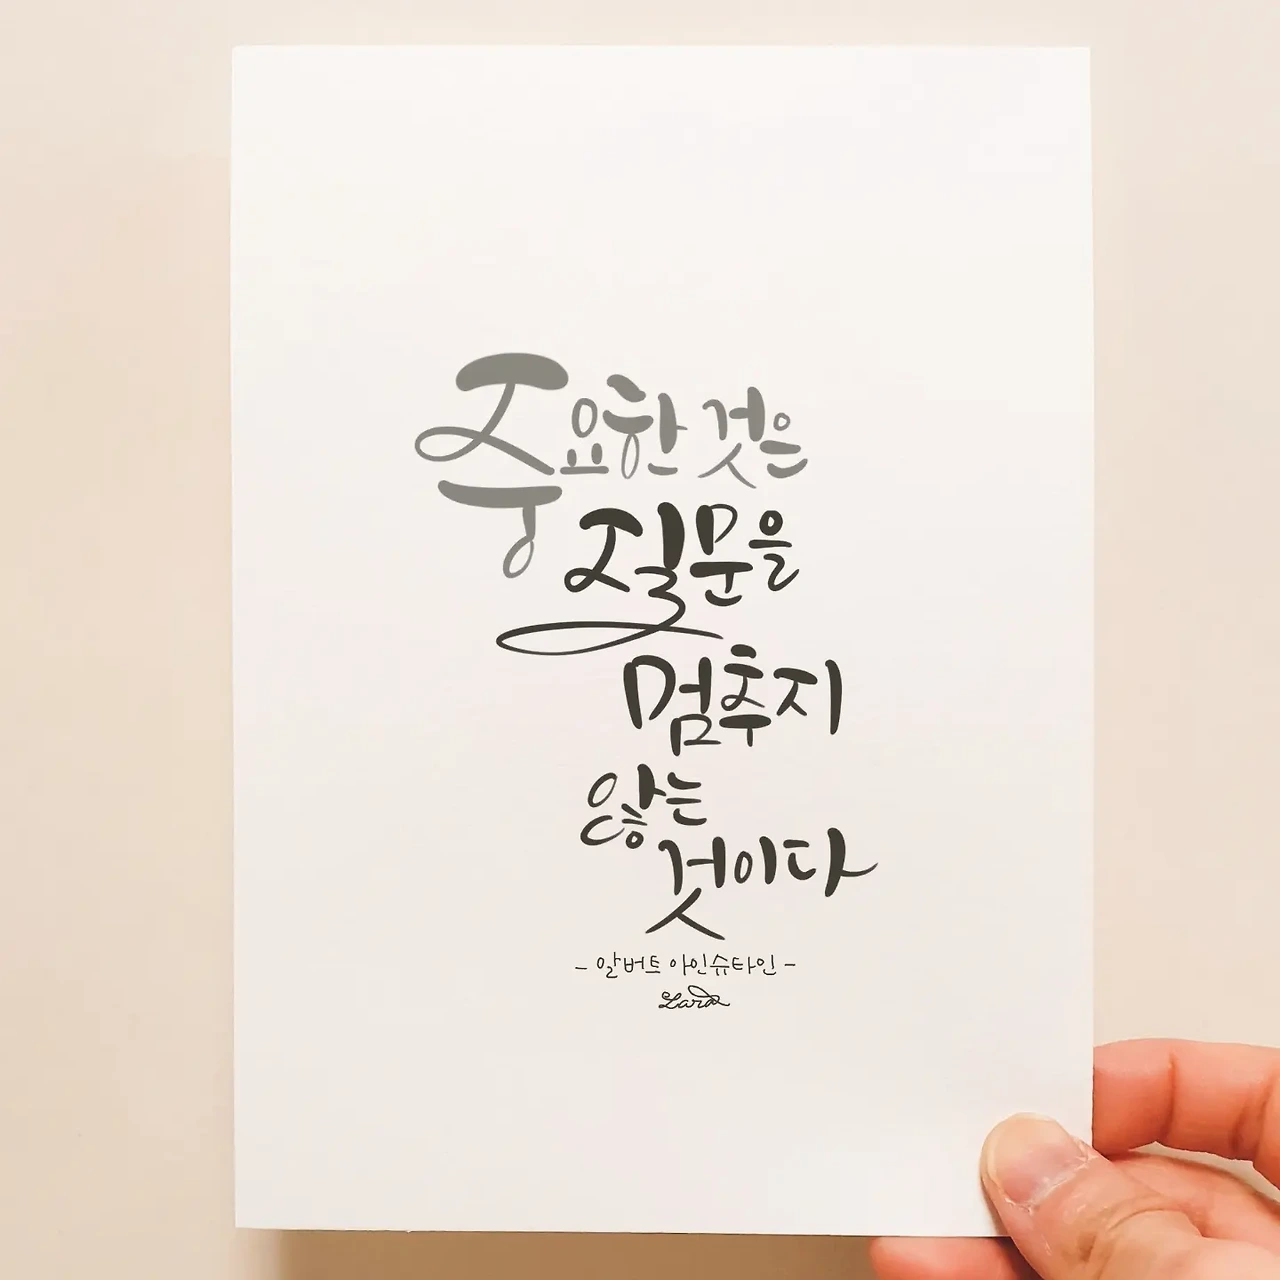 중요한 것은
질문을
멈추지
않는
것이다
- 알버트 아인슈타인 -
Lara